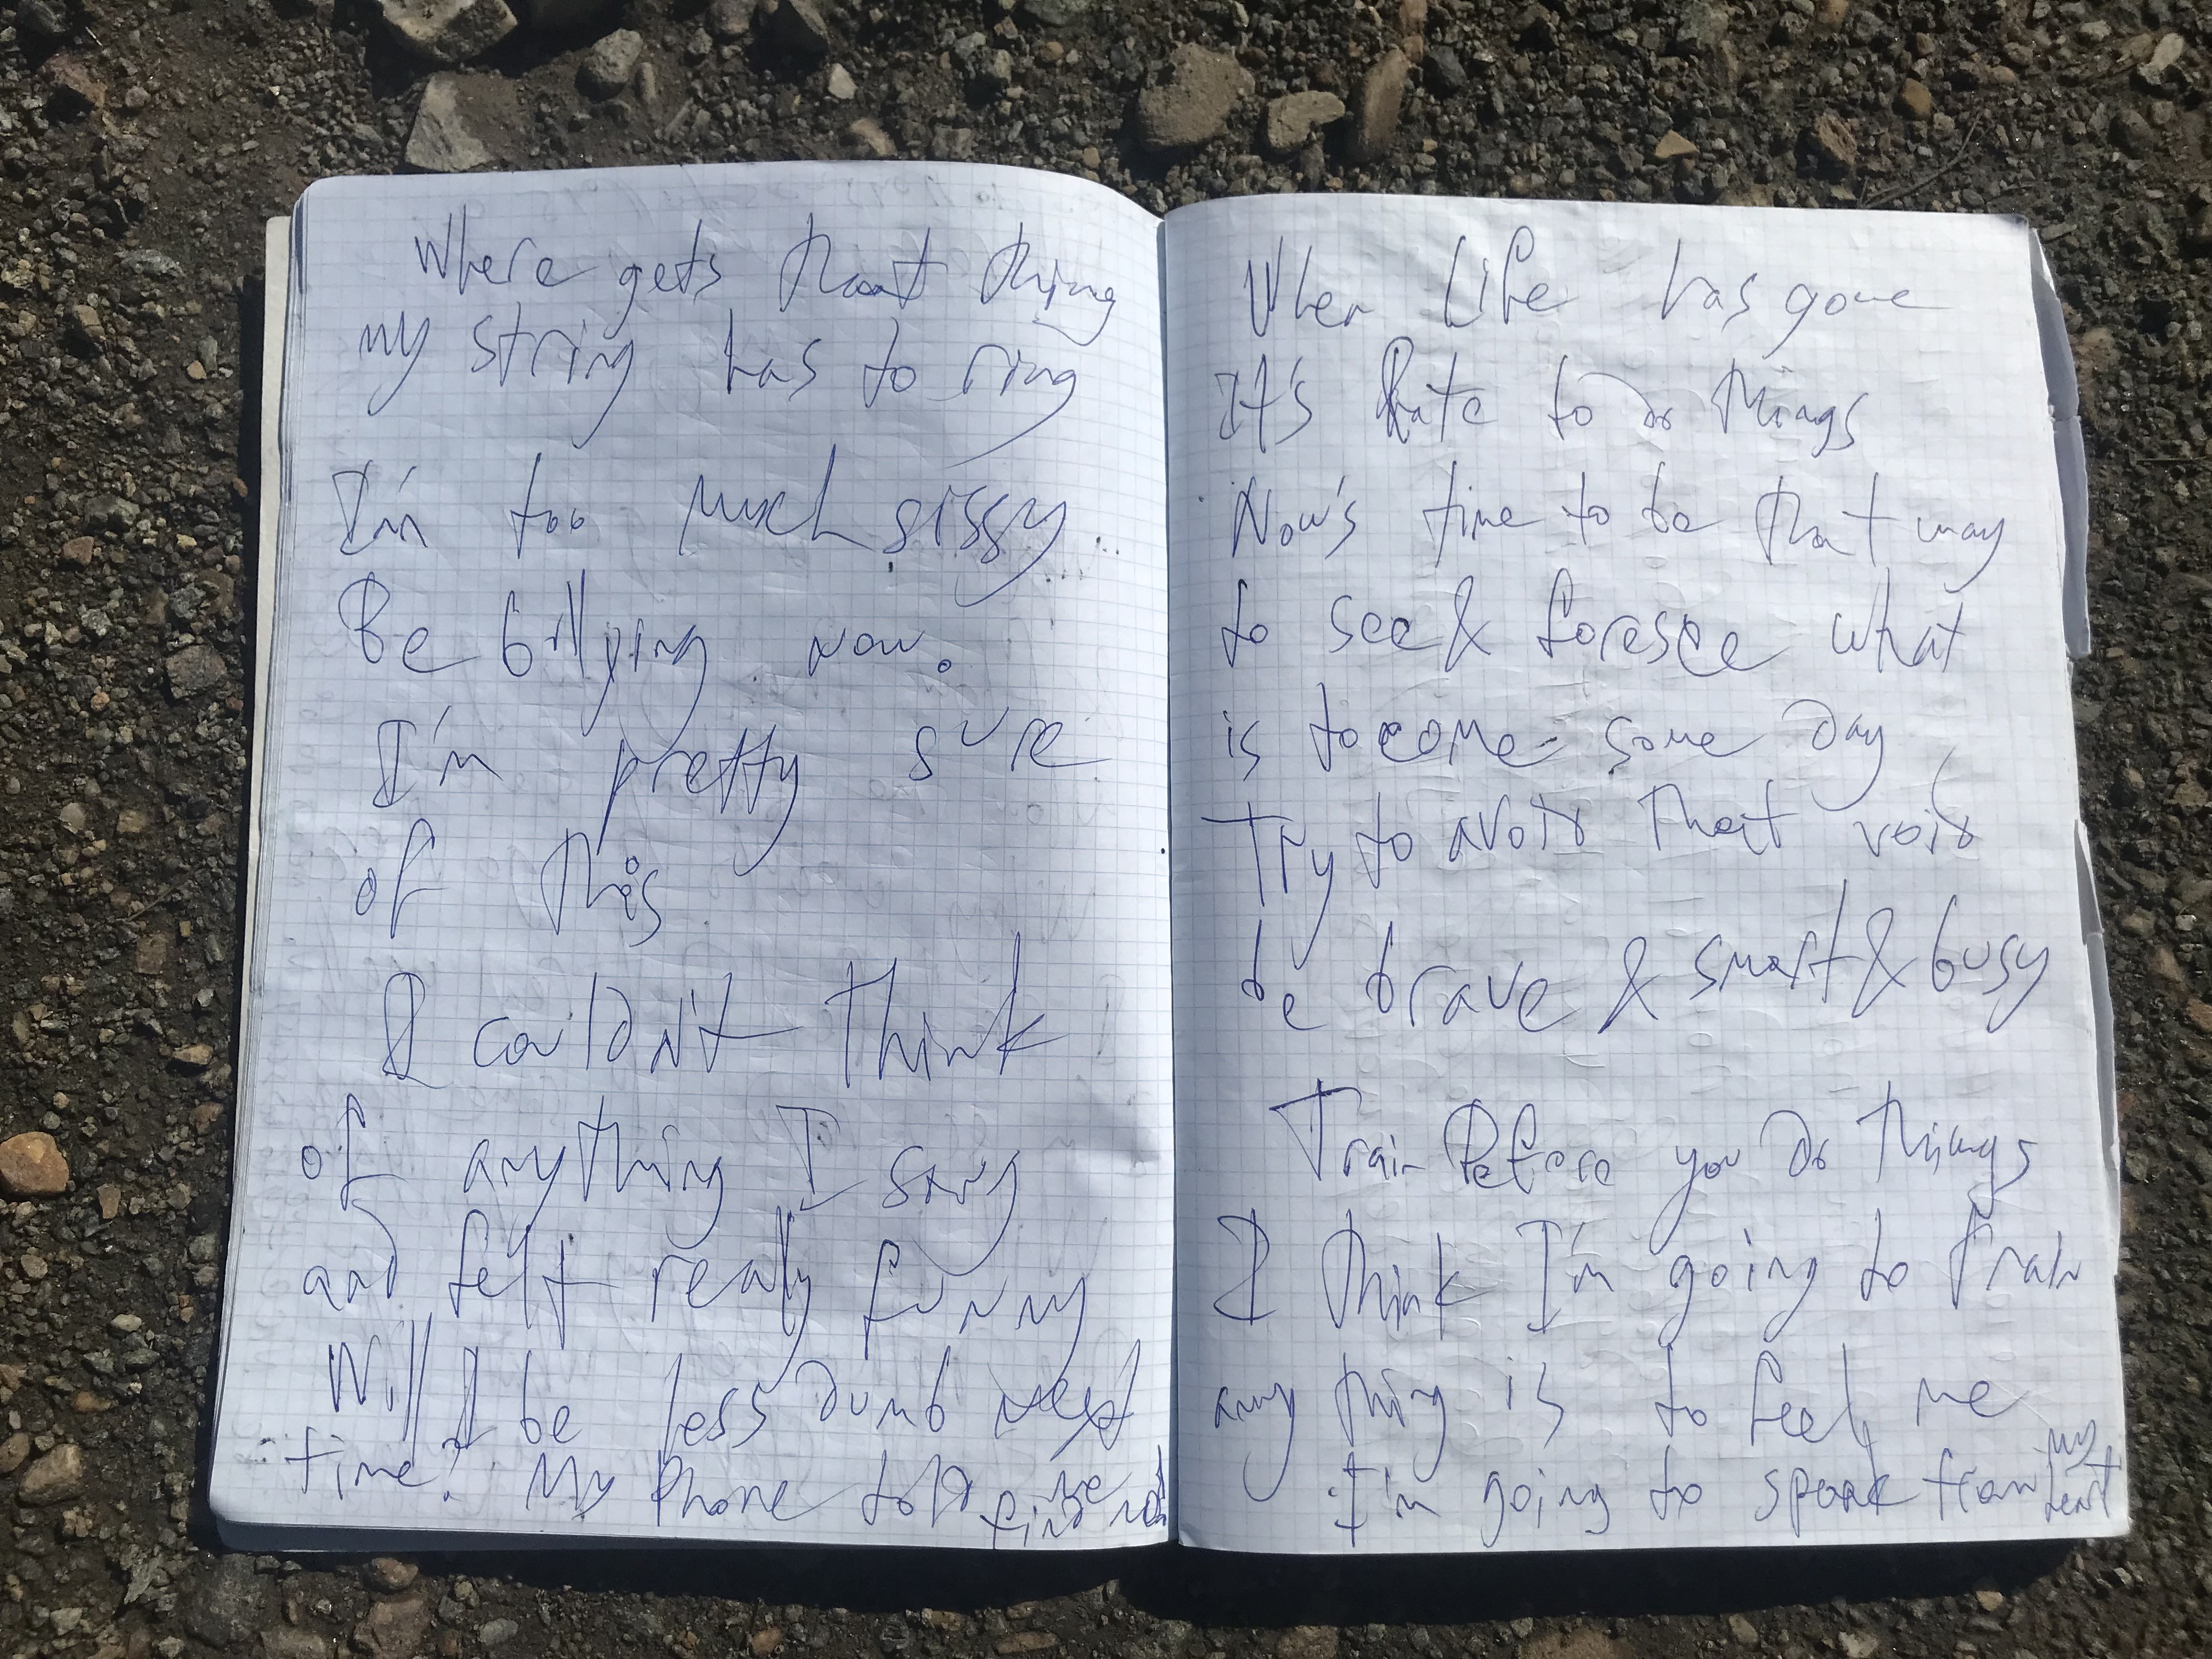 Where gets that thing
my string has to ring
I'm too much sissy
Be billying now.
I'm pretty sure
of this
I couldn't think
of anything I say
and felt realy funny
Will I be less dumb next
time? My Phone told me
find
When life has gone
It's late to do things
Now's time to be that way
to see & foresee what
is to come some day
Try to avoid that void
be brave & smart & busy
Train Before you do things
I think I'm going to train
any thing is to feel me
I'm going to speak from my
heart